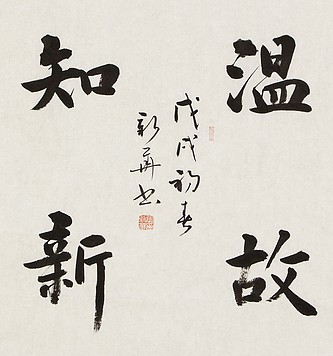 温故
知新
戊戌初春
新華书